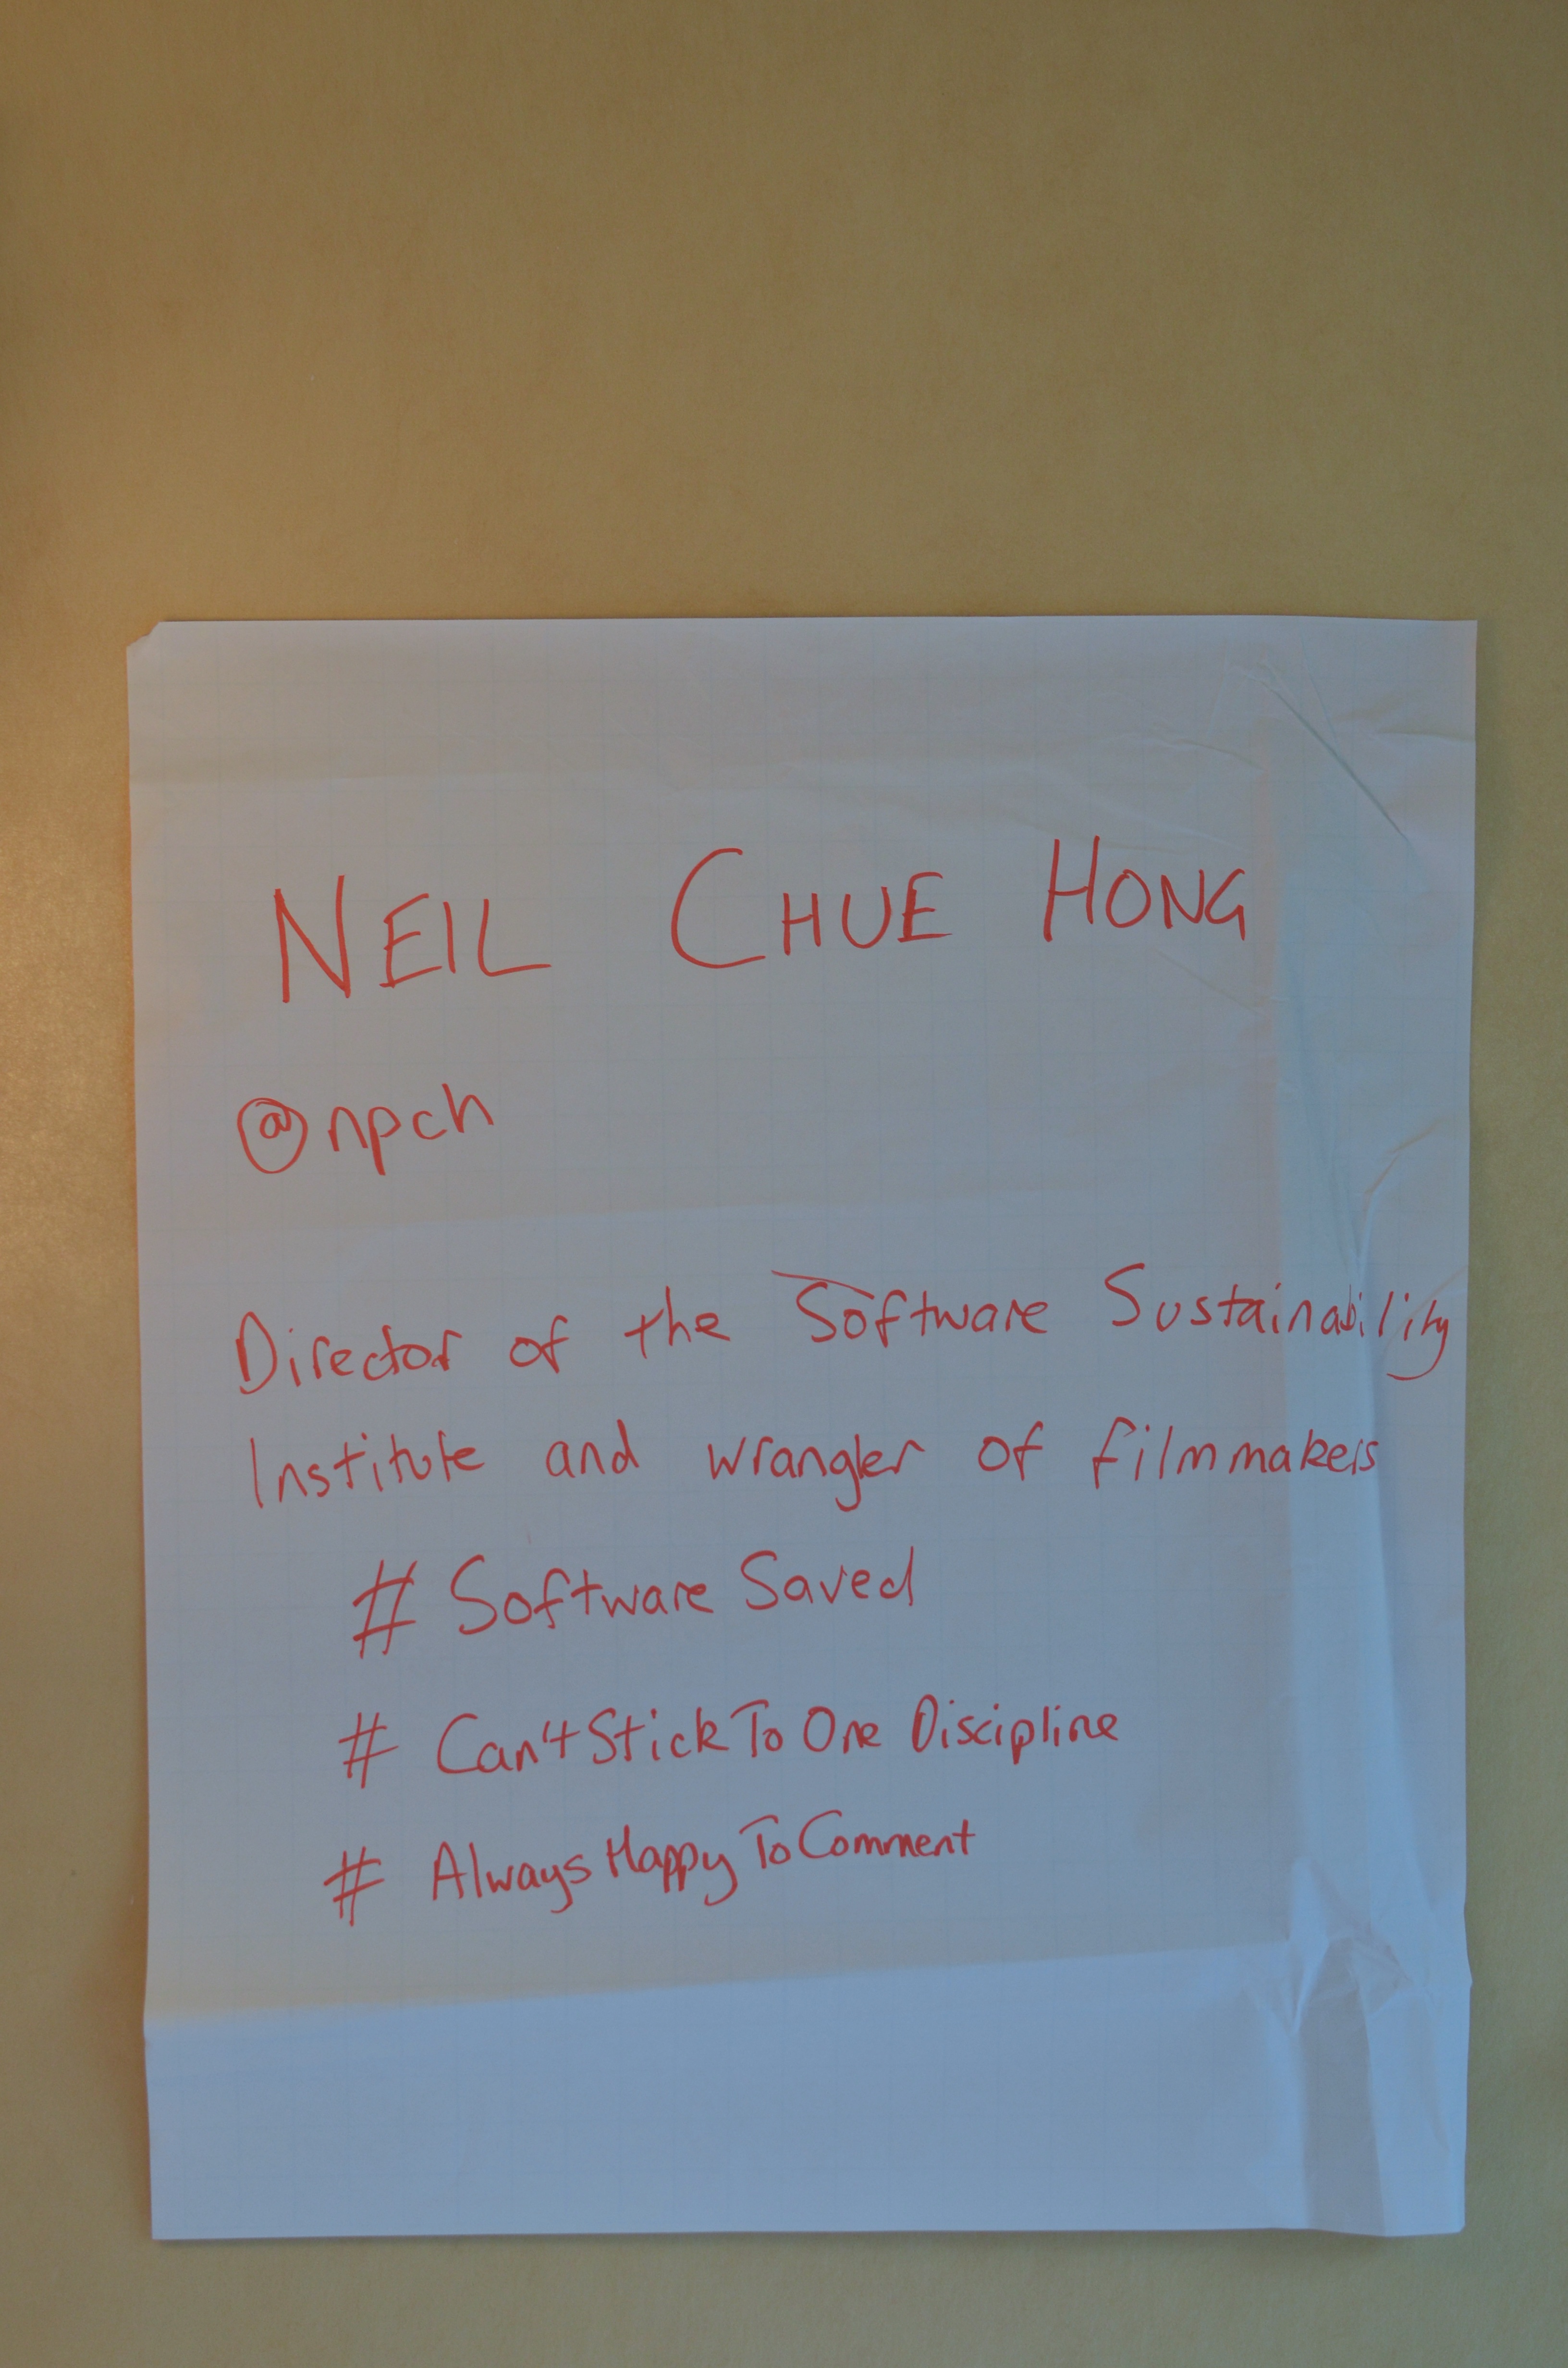 NEIL CHUE HONG
@npch
Director of the Software Sustainability
Institute and wrangler of filmmakers
# Software Saved
# Can't Stick To One Discipline
# AlwaysHappyToComment